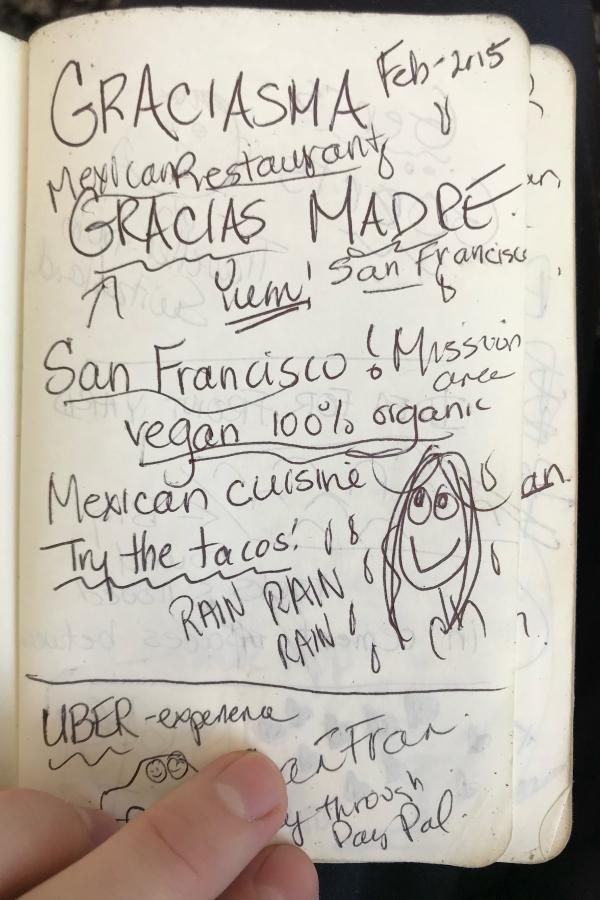 GRACIASMA Feb-2015
Mexican Restaurant
GRACIAS MADRE
Yum! San Francisco
San Francisco ! Mission
area
vegan 100% organic
Mexican cuisine
an
Try the tacos!
RAIN RAIN
RAIN
UBER-experience
San Fran
through
Pay Pal.